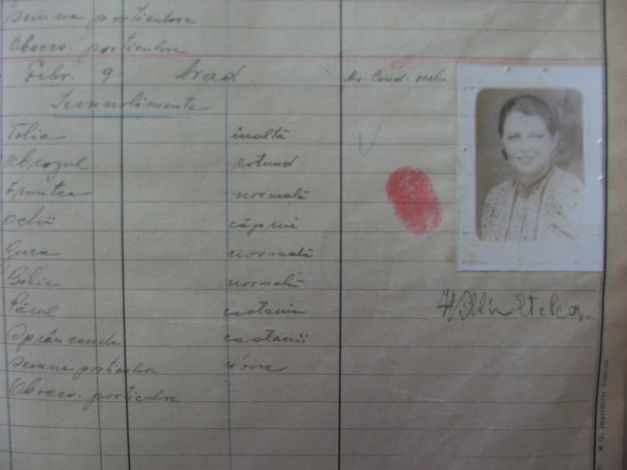 Semne particulare
Observ. particulare
Febr. 9 Arad Nr. Cond. vechi
Semnalimente
Talia înaltă
Obrazul rotund
Fruntea normală
Ochii căprui
Gura normală
Bărbia normală
Părul castaniu
Sprâncenele castanii
Semne particulare n'are
Observ. particulare
M. O. Imprimeria Centrală